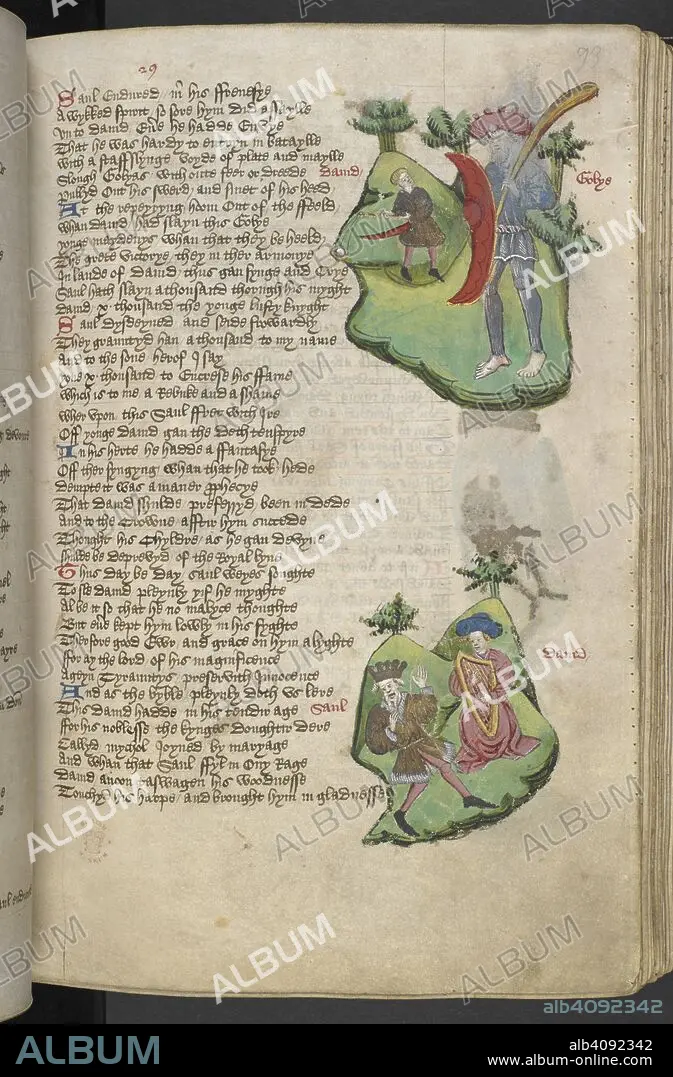 29
93
Saul Endured in his ffrenesye
A wykked spirit so sore hym did assaylle
Vnto dauid Euer he hadde Envye
That he was hardy to entryn in bataylle
With a staffslynge voyde of plate and maylle
Slough Golyas with oute feer or dreede
dauid
Pullyd Out his swerd and smet of his heed
Golye
At the repeyryng hoom Out of the ffeeld
Whan dauid had slayn this Golye
yonge maydenys whan that they beheeld
The grete victorye they in ther armonye
In laude of dauid thus gan synge and Crye
Saul hath slayn a thousand thorugh his myght
dauid x thousand the yonge lusty knyght
Saul dysdeyned and seide frowardly
They grauntyd han a thousand to my name
And to the sone herof I say
yove x thousand to Encrese his ffame
Which is to me a Rebuke and a shame
Wher vpon this Saul ffret with Ire
Off yonge dauid gan the deth tenspyre
In his herte he hadde a ffantasye
Off ther syngyng whan that he took hede
dempte it was a maner prophecye
That dauid shulde preferryd been in dede
And to the Crowne afftir hym succede
Thought his Chyldre as he gan devyne
shulde be depryvyd of the Royal lyne
Thus day be day Saul weyes soughte
To sle dauid pleynly yif he myghte
Al be it so that he no malyce thoughte
But euer kept hym lowly in his syghte
Therfore good Ewr and grace on hym alyghte
ffor ay the lord of his magnificence
Ageyn Tyrauntys preservith Innocence
dauid
And as the byble pleynly doth vs lere
This dauid hadde in his tendir age
Saul
ffor his noblesse the kynges doughtir dere
Callyd mychol Joyned by maryage
And whan that Saul ffyl in Ony Rage
dauid anoon taswagen his woodnesse
Touchyd his harpe and brought hym in gladnesse
ALBUM
alb4092342
ALBUM
alb4092342
www.album-online.com